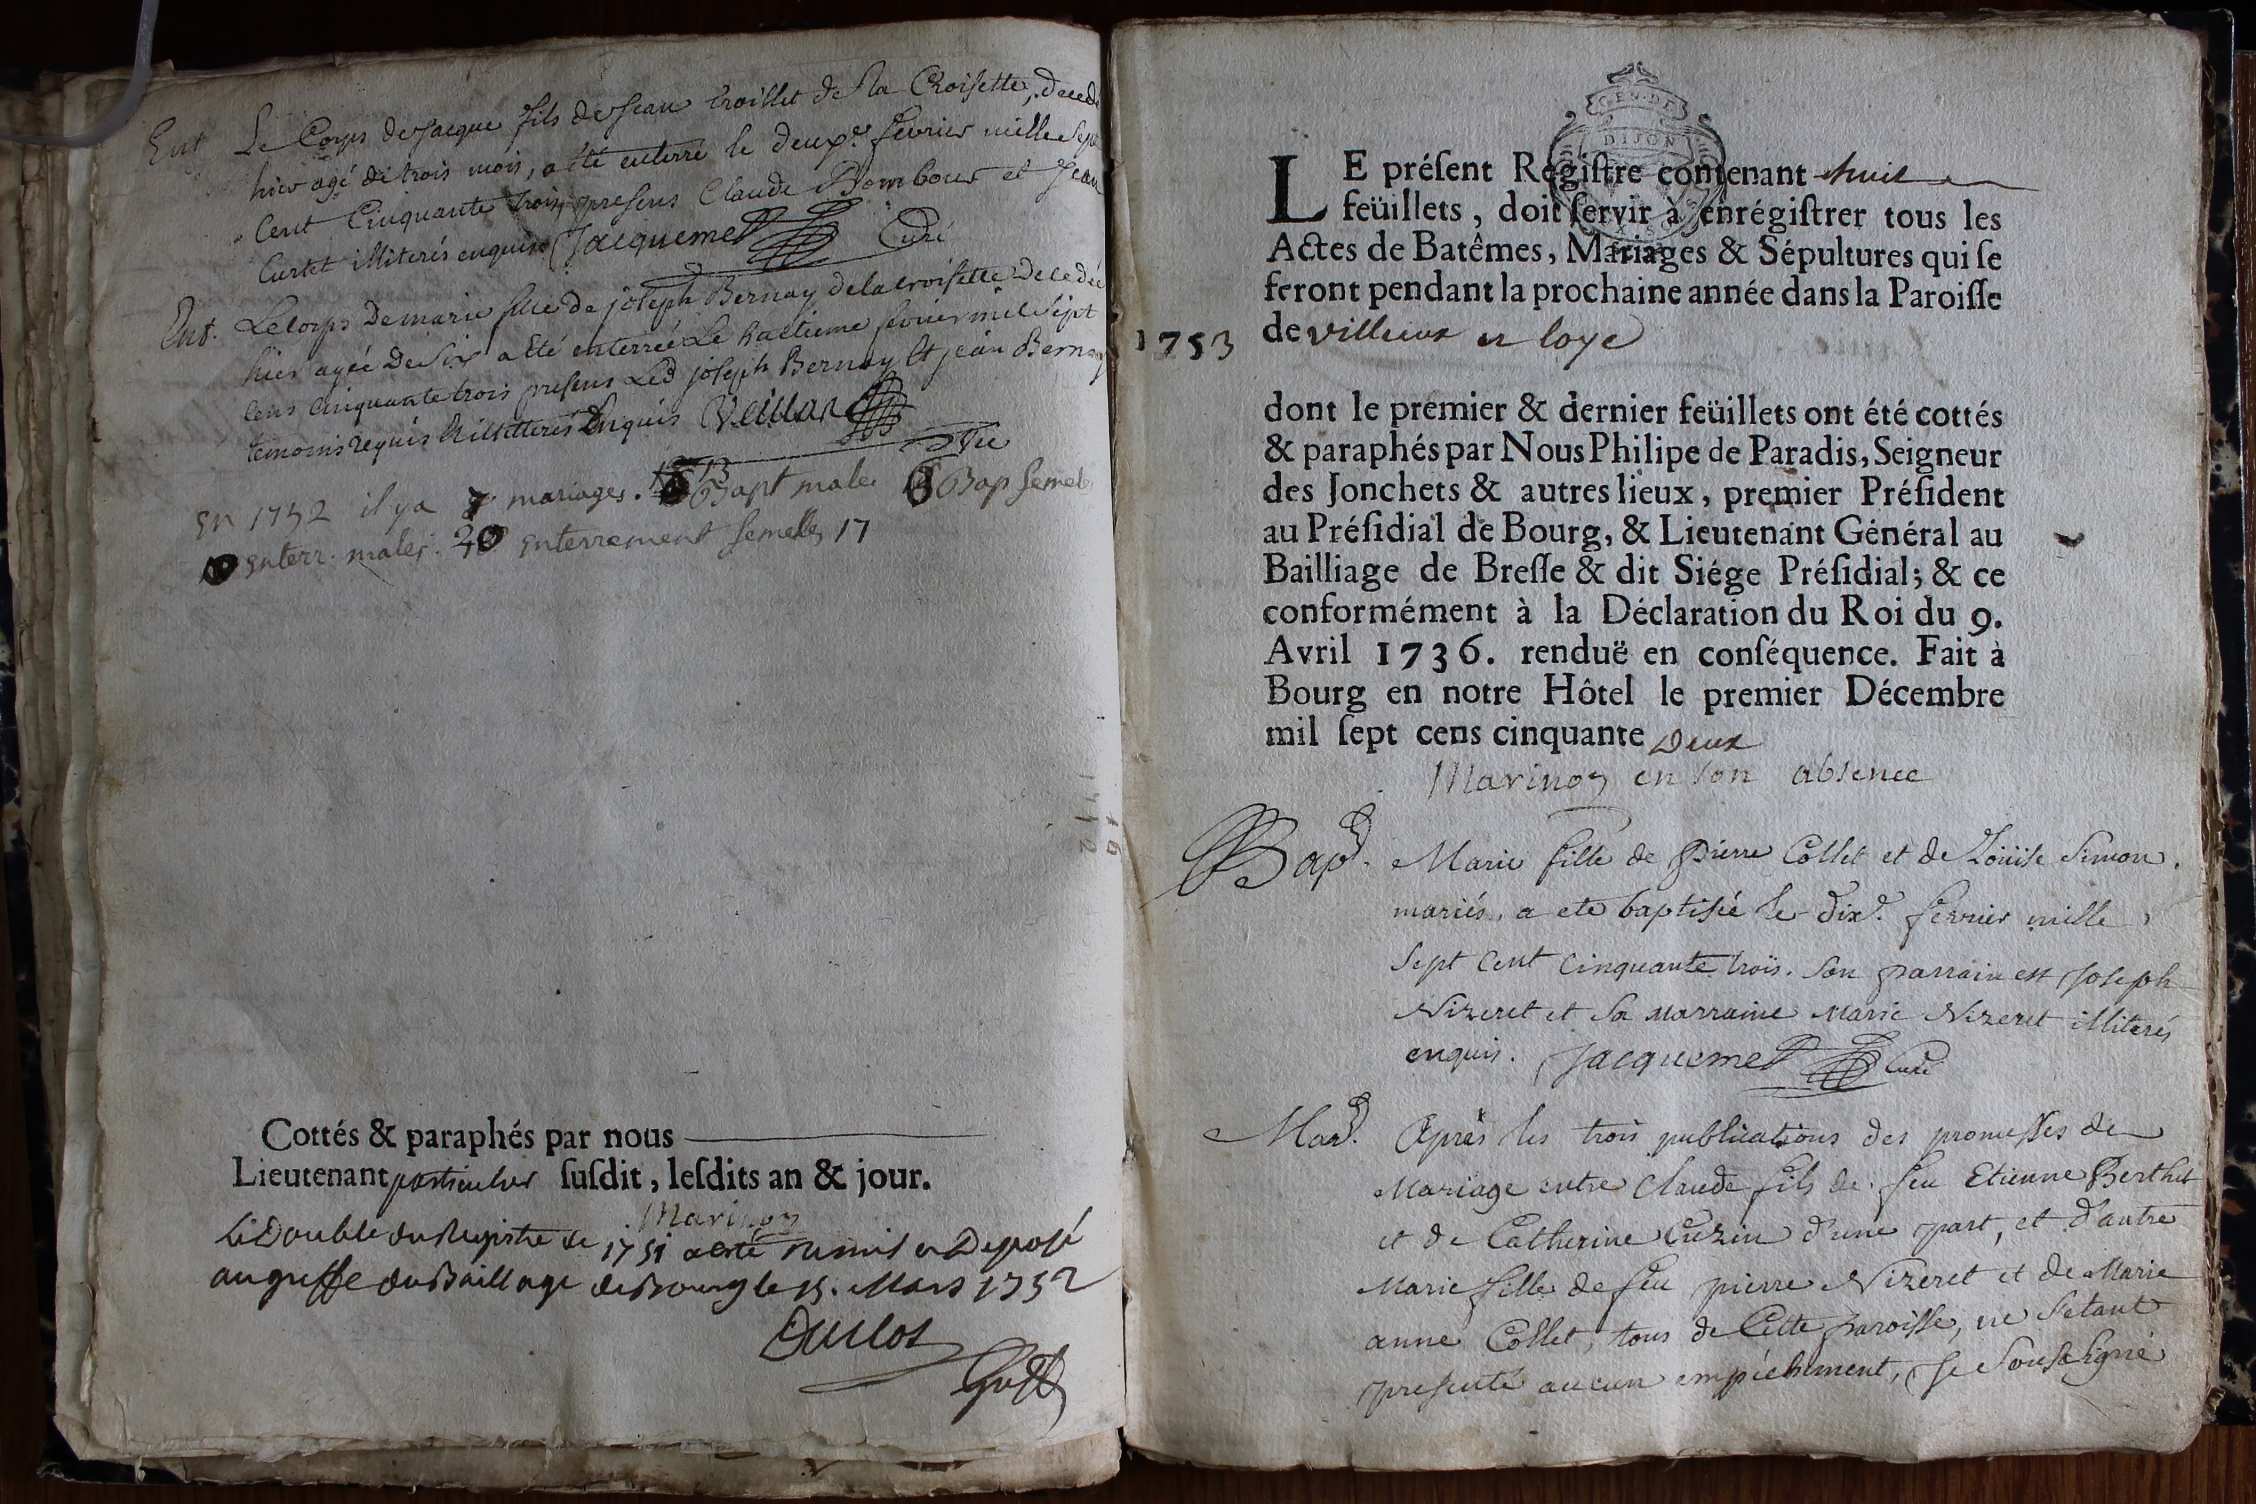 Ent Le Corps de Jacque fils de Jean Troillet de la Croisette, decedé
hier agé de trois mois, a été enterré le deuxe. fevrier mille sept
Cent Cinquante trois, presens Claude Bombour et Jean
Curtet illiterés enquis Jacquemet Curé
Ent. Le Corps de marie fille de joseph Bernay de la croisette decedée
hier agée de six a été enterrée Le huitieme fevrier mil sept
cens cinquante trois presens Led joseph Bernay Et jean Bernay
temoins requis Et illitterés Enquis Vuillar vic
en 1752 il ya mariages. 13 Bapt males Bap femel
enterr. males. enterrement femelles 17
Cottés & paraphés par nous
Lieutenant particulier susdit, lesdits an & jour.
Marinon
Le Double du Registre de 1751 a esté remis et Deposé
au greffe du Baillage de Bourg le 15. Mars 1752
Duclos
Greff
GEN. DE
DIJON
LE présent Régistre contenant huit
feüillets, doit servir à enrégistrer tous les
Actes de Batêmes, Mariages & Sépultures qui se
feront pendant la prochaine année dans la Paroisse
1753 de Villieux et loye
dont le premier & dernier feüillets ont été cottés
& paraphés par Nous Philipe de Paradis, Seigneur
des Jonchets & autres lieux, premier Président
au Présidial de Bourg, & Lieutenant Général au
Bailliage de Bresse & dit Siége Présidial; & ce
conformément à la Déclaration du Roi du 9.
Avril 1736. renduë en conséquence. Fait à
Bourg en notre Hôtel le premier Décembre
mil sept cens cinquante Deux
Marinon en son absence
Bapt. Marie fille de Pierre Collet et de Loüise Simon
mariés, a ete baptisée le dixe. fevrier mille
sept cent cinquante trois. Son parrain est Joseph
Nizeret et sa marraine Marie Nizeret illiterés
enquis. Jacquemet Curé
Mar. Après les trois publications des promesses de
Mariage entre Claude fils de feu Etienne Berthet
et de Catherine Cuzin d'une part, et d'autre
Marie fille de feu pierre Nizeret et de Marie
anne Collet, tous de Cette paroisse, ne s'etant
presenté aucun empêchement, Je Soussigné